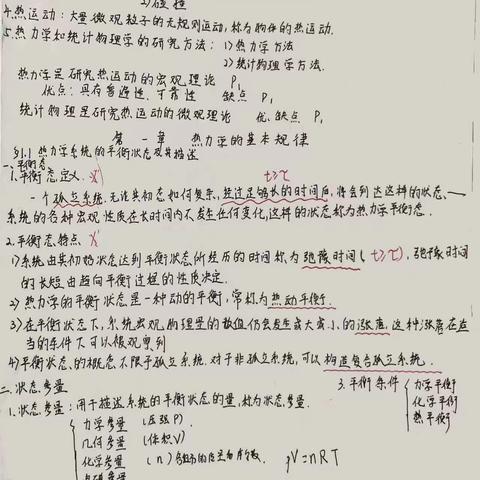 4.热运动：大量微观粒子的无规则运动，称为物体的热运动.
5.热力学和统计物理学的研究方法：1)热力学方法
2)统计物理学方法.
热力学是研究热运动的宏观理论 P1
优点：具有普遍性、可靠性 缺点 P1
统计物理是研究热运动的微观理论 优、缺点 P1
第一章 热力学的基本规律
§1.1 热力学系统的平衡状态及其描述
一、平衡态
1.平衡态定义. t>>τ
一个孤立系统,无论其初态如何复杂,经过足够长的时间后,将会到达这样的状态、—
系统的各种宏观性质在长时间内不发生任何变化,这样的状态称为热力学平衡态.
2.平衡态特点、
1)系统由其初始状态达到平衡状态所经历的时间称为弛豫时间(t>>τ),弛豫时间
的长短由趋向平衡过程的性质决定.
2)热力学的平衡状态是一种动的平衡,常称为热动平衡.
3)在平衡状态下,系统宏观物理量的数值仍会发生或大或小的涨落,这种涨落在适
当的条件下可以
4)平衡状态的概念不限于孤立系统.对于非孤立系统,可以构造复合孤立系统.
3.平衡条件 { 力学平衡
化学平衡
热平衡
二、状态参量
1.状态参量:用于描述系统的平衡状态的量,称为状态参量.
力学参量 (压强P)
几何参量 (体积V)
化学参量 (n)各组分的 pV=nRT